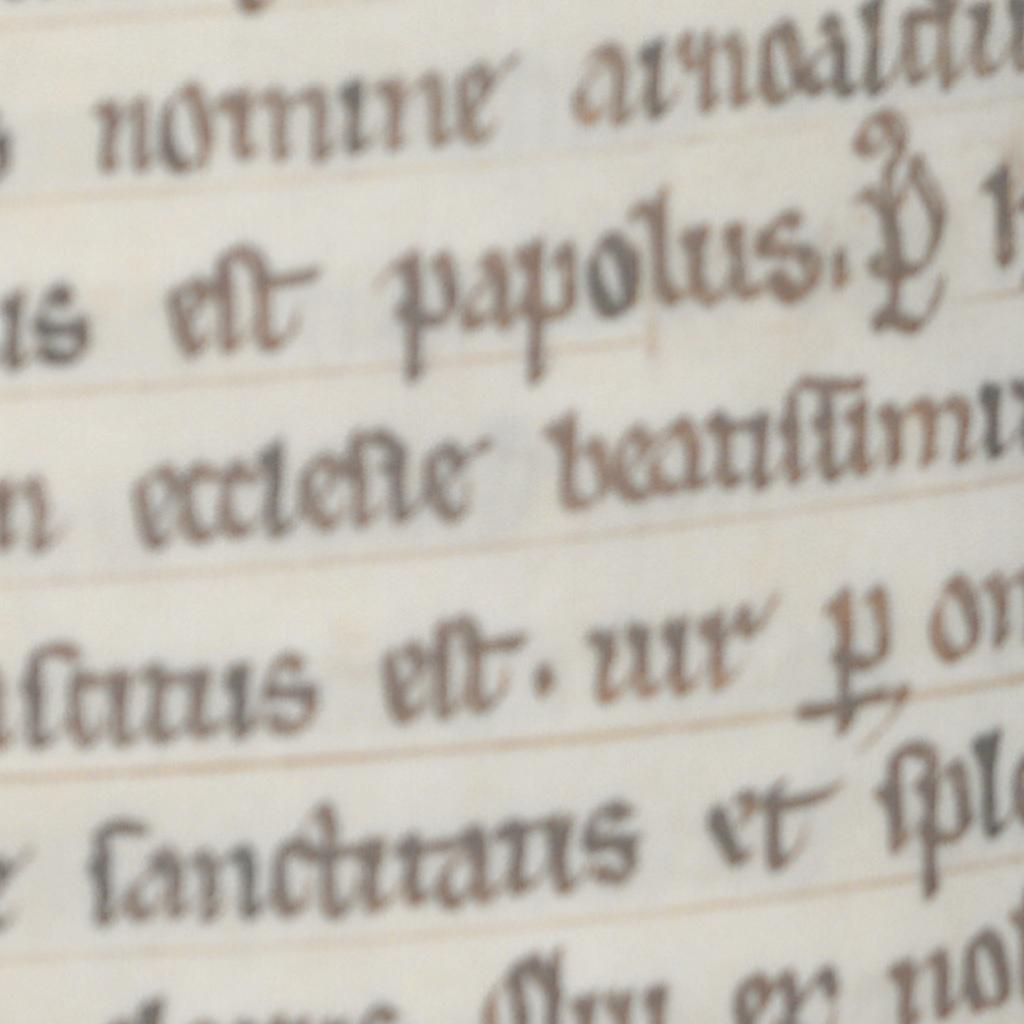 nomine arnoaldu
us est papolus.
n ecclesie beatissimi
est. uir p om
sanctitatis et sple
Qui ex nob